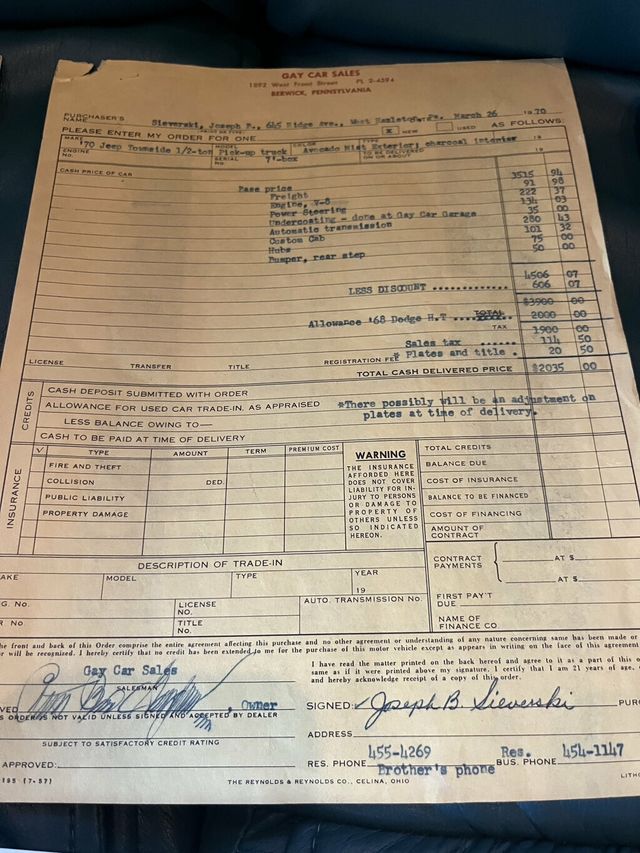 GAY CAR SALES
1892 West Front Street PL 2-4594
BERWICK, PENNSYLVANIA
PURCHASER'S
NAME Sieverski, Joseph B., 645 Ridge Ave., West Hazleton, Pa. March 26 1970
PLEASE ENTER MY ORDER FOR ONE X NEW USED AS FOLLOWS:
MAKE '70 Jeep Townside 1/2-ton MODEL Pick-up truck COLOR Avocado Mist Exterior; TYPE charcoal interior 19
ENGINE NO. SERIAL NO. 7'-box TO BE DELIVERED ON OR ABOUT 19
CASH PRICE OF CAR
Base price 3515 94
Freight 91 98
Engine, V-8 222 37
Power Steering 134 03
Undercoating - done at Gay Car Garage 35 00
Automatic transmission 280 43
Custom Cab 101 32
Hubs 75 00
Bumper, rear step 50 00
4506 07
LESS DISCOUNT .............. 606 07
$3900 00
Allowance '68 Dodge H.T TOTAL 2000 00
TAX 1900 00
Sales tax ...... 114 50
LICENSE TRANSFER TITLE REGISTRATION FEE * Plates and title . 20 50
TOTAL CASH DELIVERED PRICE $2035 00
CREDITS
CASH DEPOSIT SUBMITTED WITH ORDER
ALLOWANCE FOR USED CAR TRADE-IN, AS APPRAISED
*There possibly will be an adjustment on
plates at time of delivery.
LESS BALANCE OWING TO—
CASH TO BE PAID AT TIME OF DELIVERY
INSURANCE
√ TYPE AMOUNT TERM PREMIUM COST
FIRE AND THEFT
COLLISION DED.
PUBLIC LIABILITY
PROPERTY DAMAGE
WARNING
THE INSURANCE
AFFORDED HERE
DOES NOT COVER
LIABILITY FOR IN-
JURY TO PERSONS
OR DAMAGE TO
PROPERTY OF
OTHERS UNLESS
SO INDICATED
HEREON.
TOTAL CREDITS
BALANCE DUE
COST OF INSURANCE
BALANCE TO BE FINANCED
COST OF FINANCING
AMOUNT OF
CONTRACT
CONTRACT
PAYMENTS
AT $
AT $
FIRST PAY'T
DUE
NAME OF
FINANCE CO.
DESCRIPTION OF TRADE-IN
AKE MODEL TYPE YEAR
19
G. No. LICENSE
NO. AUTO. TRANSMISSION No.
R No. TITLE
NO.
he front and back of this Order comprise the entire agreement affecting this purchase and no other agreement or understanding of any nature concerning same has been made or
r will be recognized. I hereby certify that no credit has been extended to me for the purchase of this motor vehicle except as appears in writing on the face of this agreement
I have read the matter printed on the back hereof and agree to it as a part of this o
same as if it were printed above my signature. I certify that I am 21 years of age,
and hereby acknowledge receipt of a copy of this order.
Gay Car Sales
SALESMAN
VED , Owner
S ORDER IS NOT VALID UNLESS SIGNED AND ACCEPTED BY DEALER
SIGNED: Joseph B. Sieverski PUR
SUBJECT TO SATISFACTORY CREDIT RATING
ADDRESS
455-4269 Res. 454-1147
APPROVED:
RES. PHONE Brother's phone BUS. PHONE
195 (7-57) THE REYNOLDS & REYNOLDS CO., CELINA, OHIO LITHO